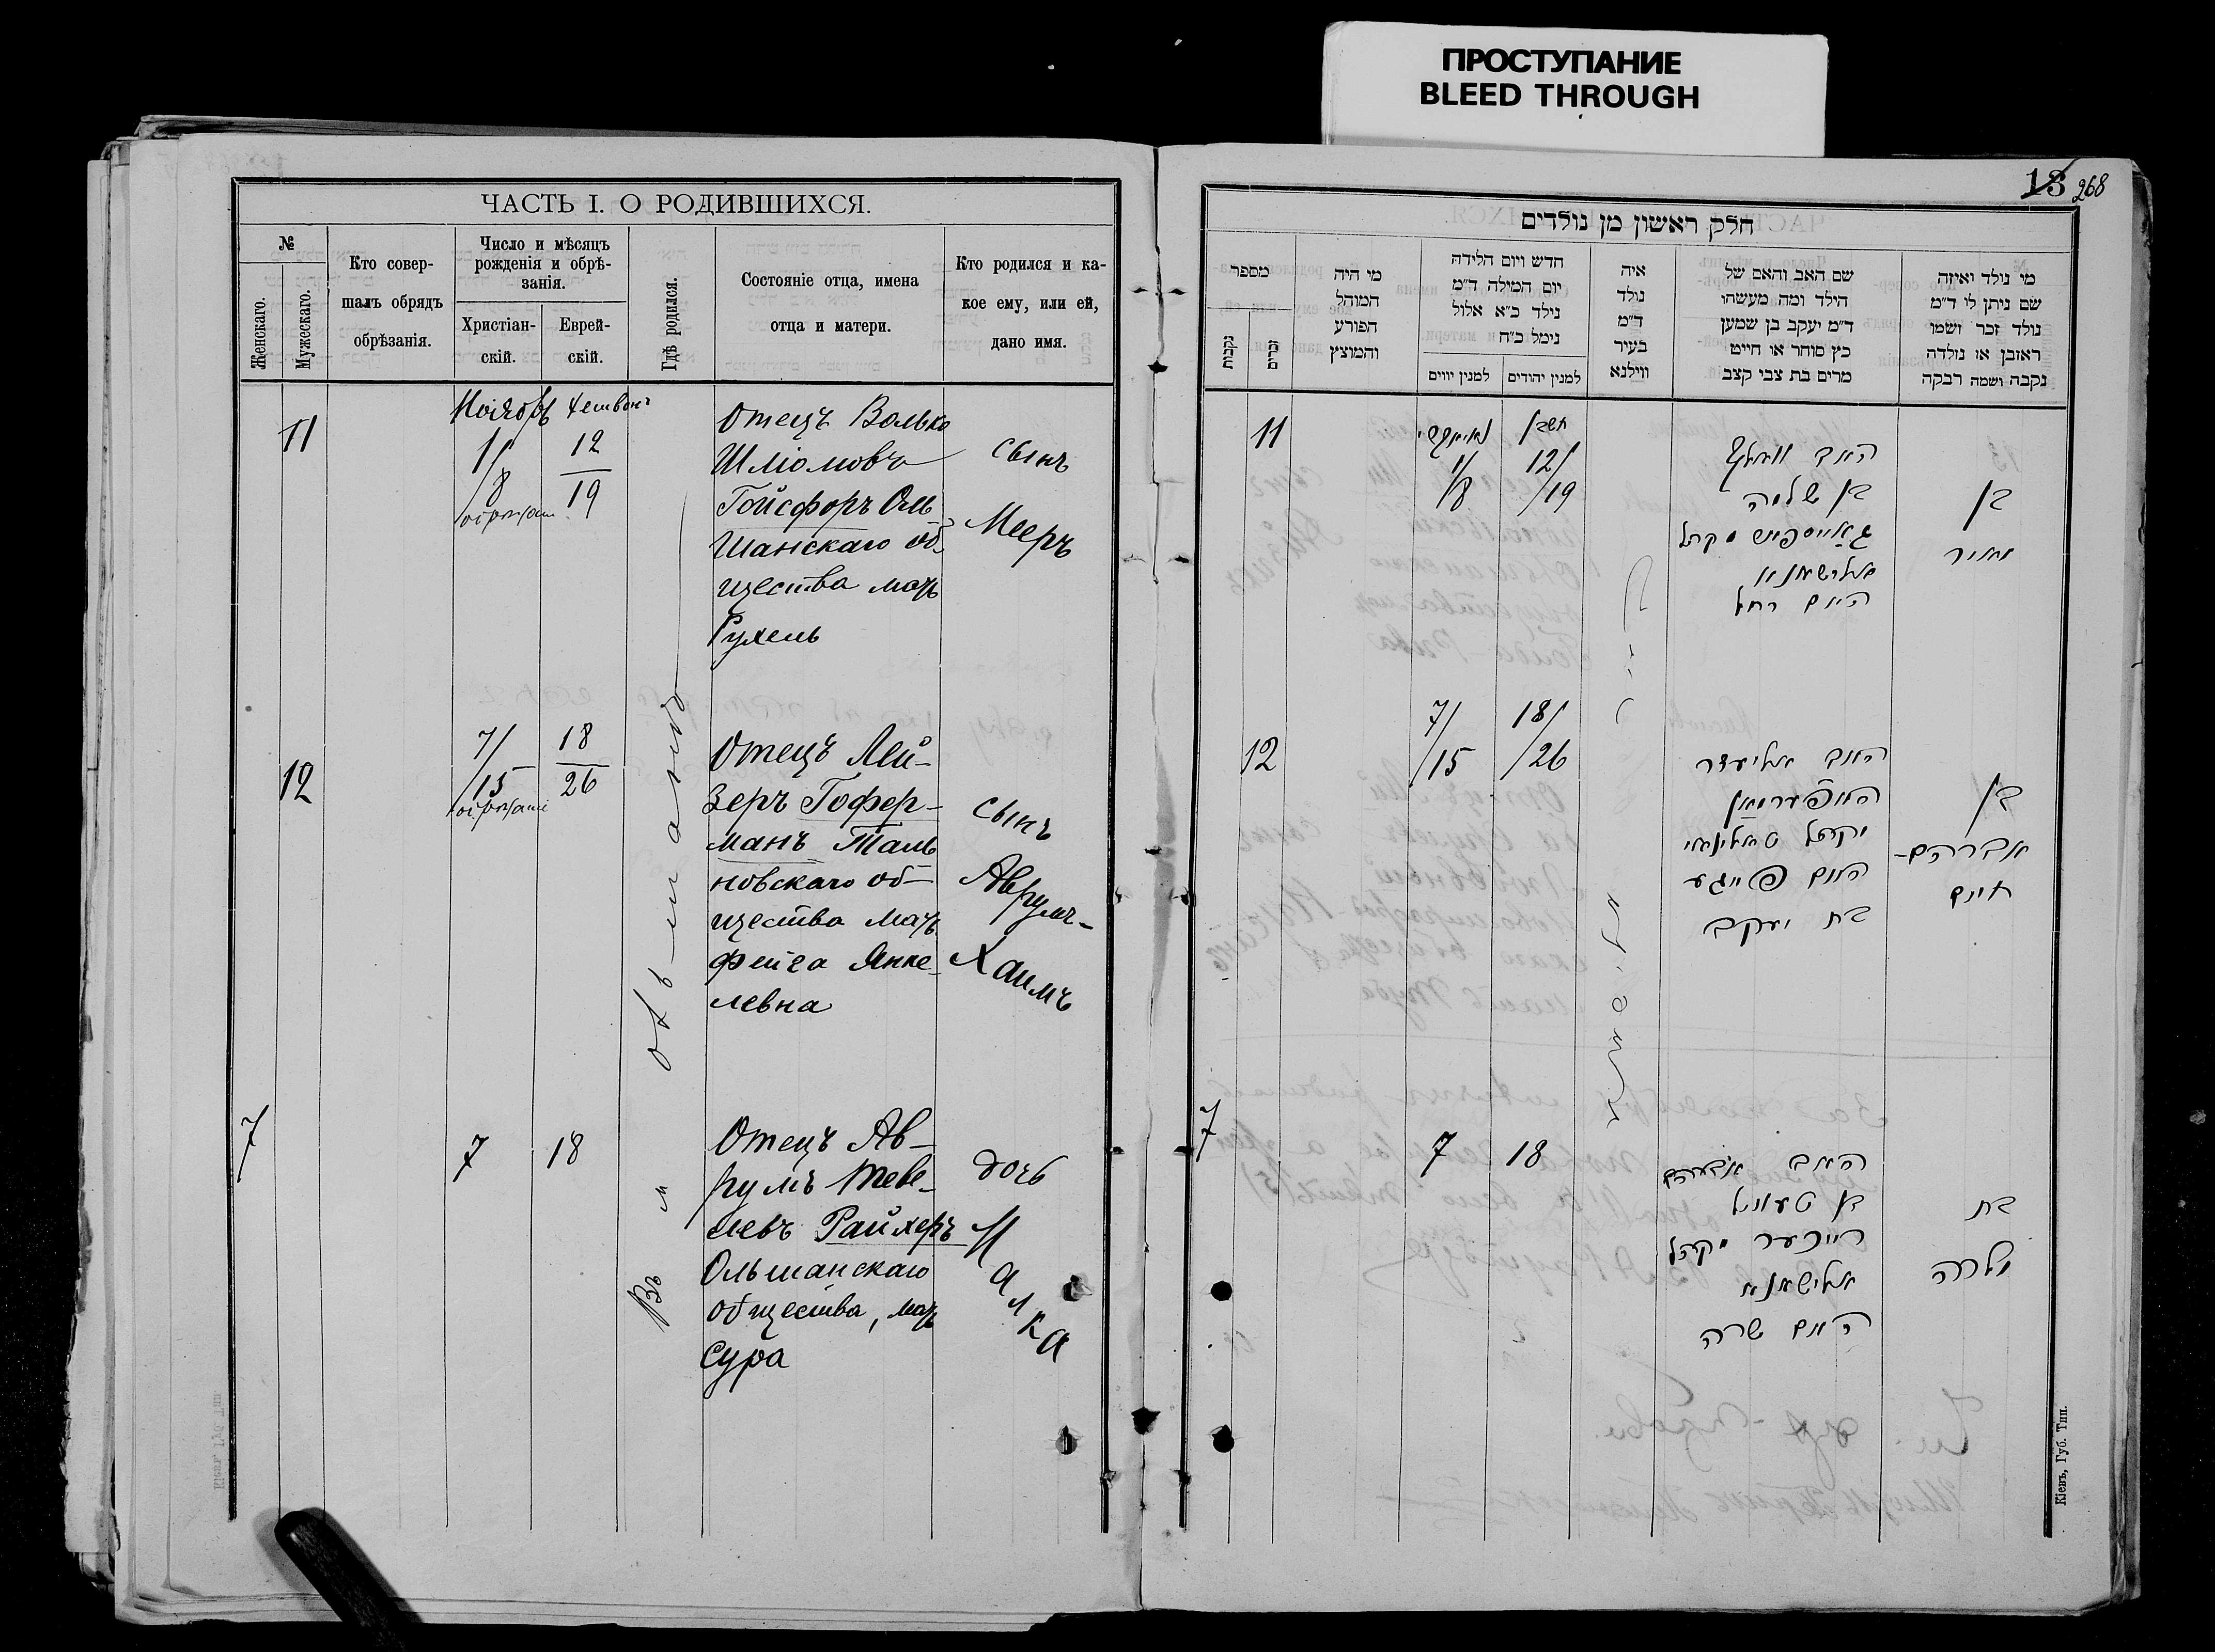 ПРОСТУПАНИЕ
BLEED THROUGH
ЧАСТЬ I. О РОДИВШИХСЯ.
№
Женскаго.
Мужескаго.
Кто совер-
шалъ обрядъ
обрѣзанія.
Число и мѣсяцъ
рожденія и обрѣ-
занія.
Христіан-
скій.
Еврей-
скій.
Гдѣ родился.
Состояніе отца, имена
отца и матери.
Кто родился и ка-
кое ему, или ей,
дано имя.
11
1/
/8
12
19
Отецъ Волько
Шліомовъ
Гойсфоръ Оль
шанскаго об-
щества мать
Рухель
сынъ
Мееръ
12
7/
/15
18
26
Отецъ Лей-
зеръ Гофер-
манъ Таль
новскаго об-
щества мать
Фейга Янке-
левна
сынъ
Аврумъ-
Хаимъ
7
7
18
Отецъ Ав-
румъ Теве-
левъ Райхеръ
Ольшанскаго
общества, мать
Сура
дочь
Малка
Въ м Ольшаной
13 268
חלק ראשון מן נולדים
מספר
נקבות
זכרים
מי היה
המוהל
הפורע
והמוצץ
חדש ויום הלידה
יום המילה ד"מ
נילד כ"א אלול
נימל כ"ח
למנין יווים
למנין יהודים
איה
נולד
ד"מ
בעיר
ווילנא
שם האב והאם של
הילד ומה מעשהו
ד"מ יעקב בן שמען
כץ סוחר או חייט
מרים בת צבי קצב
מי נולד ואיזה
שם ניתן לו ד"מ
נולד זכר ושמו
ראובן או נולדה
נקבה ושמה רבקה
11
1/
/8
חשבן
12/
/19
האב וואלף
בן שלמה
האם רחל
בן
מאיר
12
7/
/15
18/
/26
האב אליעזר
האפערמאן
האם פייגע
בת יעקב
בן
אברהם-
חיים
7
7
18
האב אברהם
בן טעוויל
רייכער מקהל
אלישאנא
האם שרה
בת
מלכה
Кіевъ, Губ. Тип.